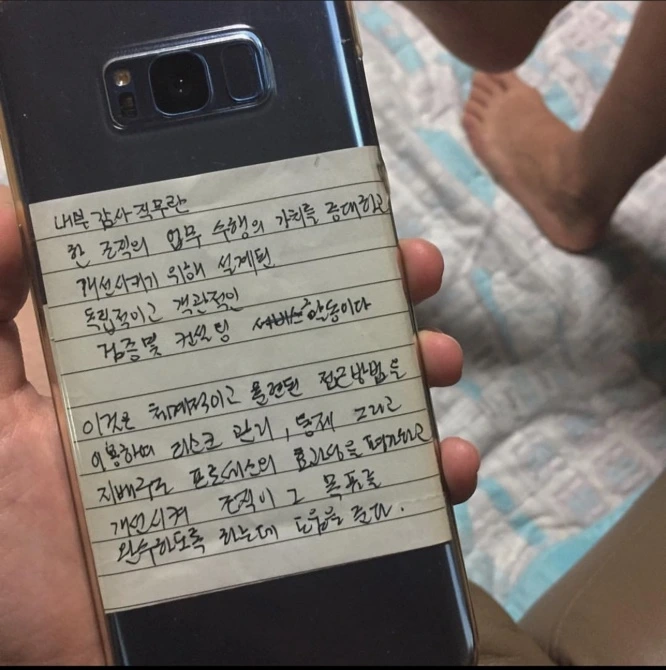 내부감사직무란
한 조직의 업무 수행의 가치를 증대하고
개선시키기 위해 설계된
독립적이고 객관적인
검증 및 컨설팅 활동이다
이것은 체계적이고 훈련된 접근방법을
이용하여 리스크 관리, 통제 그리고
지배구조 프로세스의 효과성을 평가하고
개선시켜 조직이 그 목표를
완수하도록 하는데 도움을 준다.